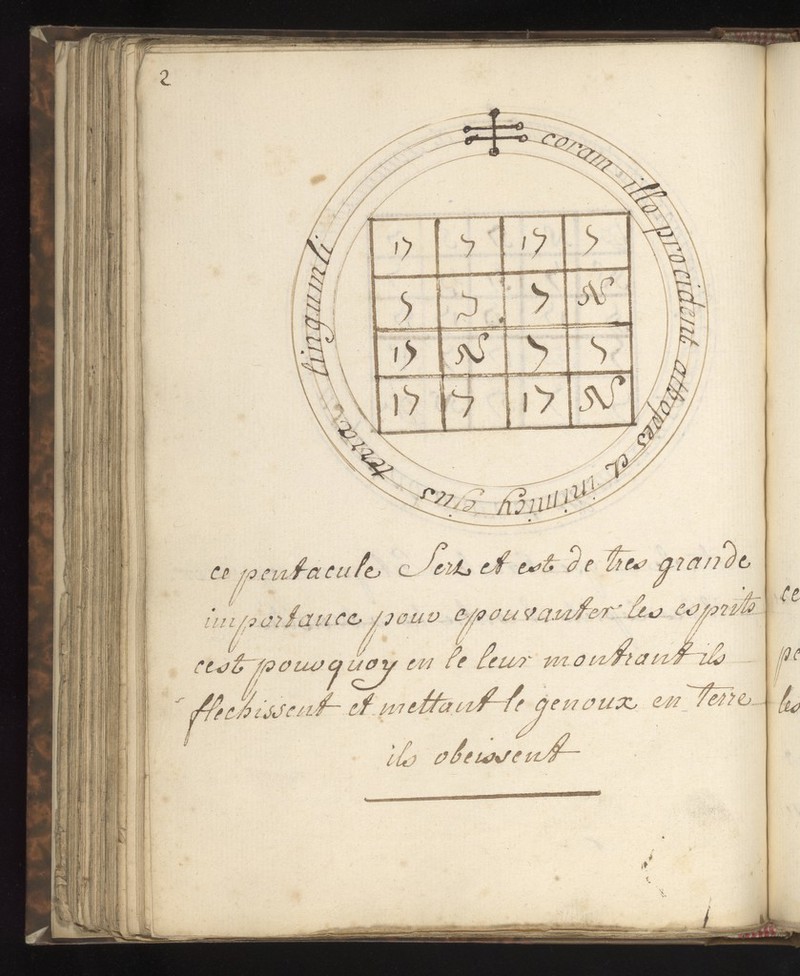 2
coram illo procident athopes et inimicy ejus terra lingumli
ce pentacule Sert et est de tres grande
importance pour epouvanter les esprits
cest pourquoy en le leur montrant ils
flechissent et mettant le genoux en terre
ils obeissent
ce
les